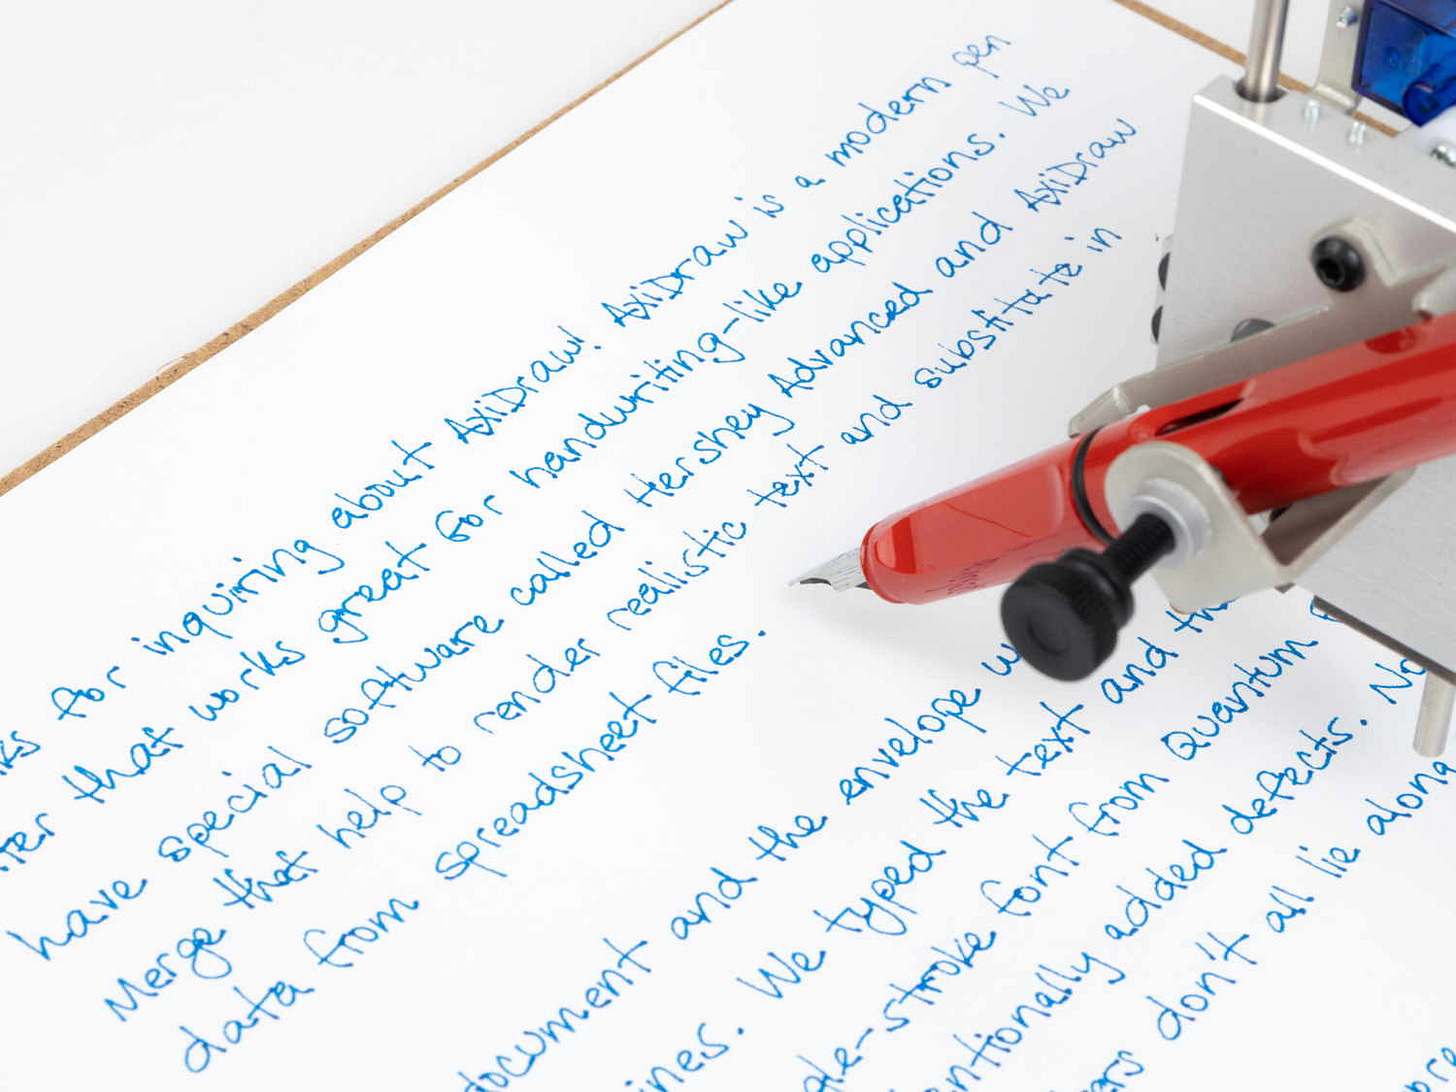 for inquiring about AxiDraw! AxiDraw is a modern pen
that works great for handwriting-like applications. We
have special software called Hershey Advanced and AxiDraw
Merge that help to render realistic text and substitute in
data from spreadsheet files.
document and the envelope
. We typed the text and
-stroke font from Quantum
added defects. No
don't all lie along